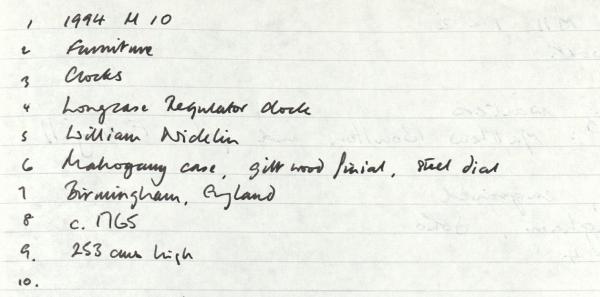 1 1994 M 10
2 Furniture
3 Clocks
4 Longcase Regulator clock
5 William Nicklin
6 Mahogany case, gilt wood finial, steel dial
7 Birmingham, England
8 c. 1765
9. 253 cms high
10.